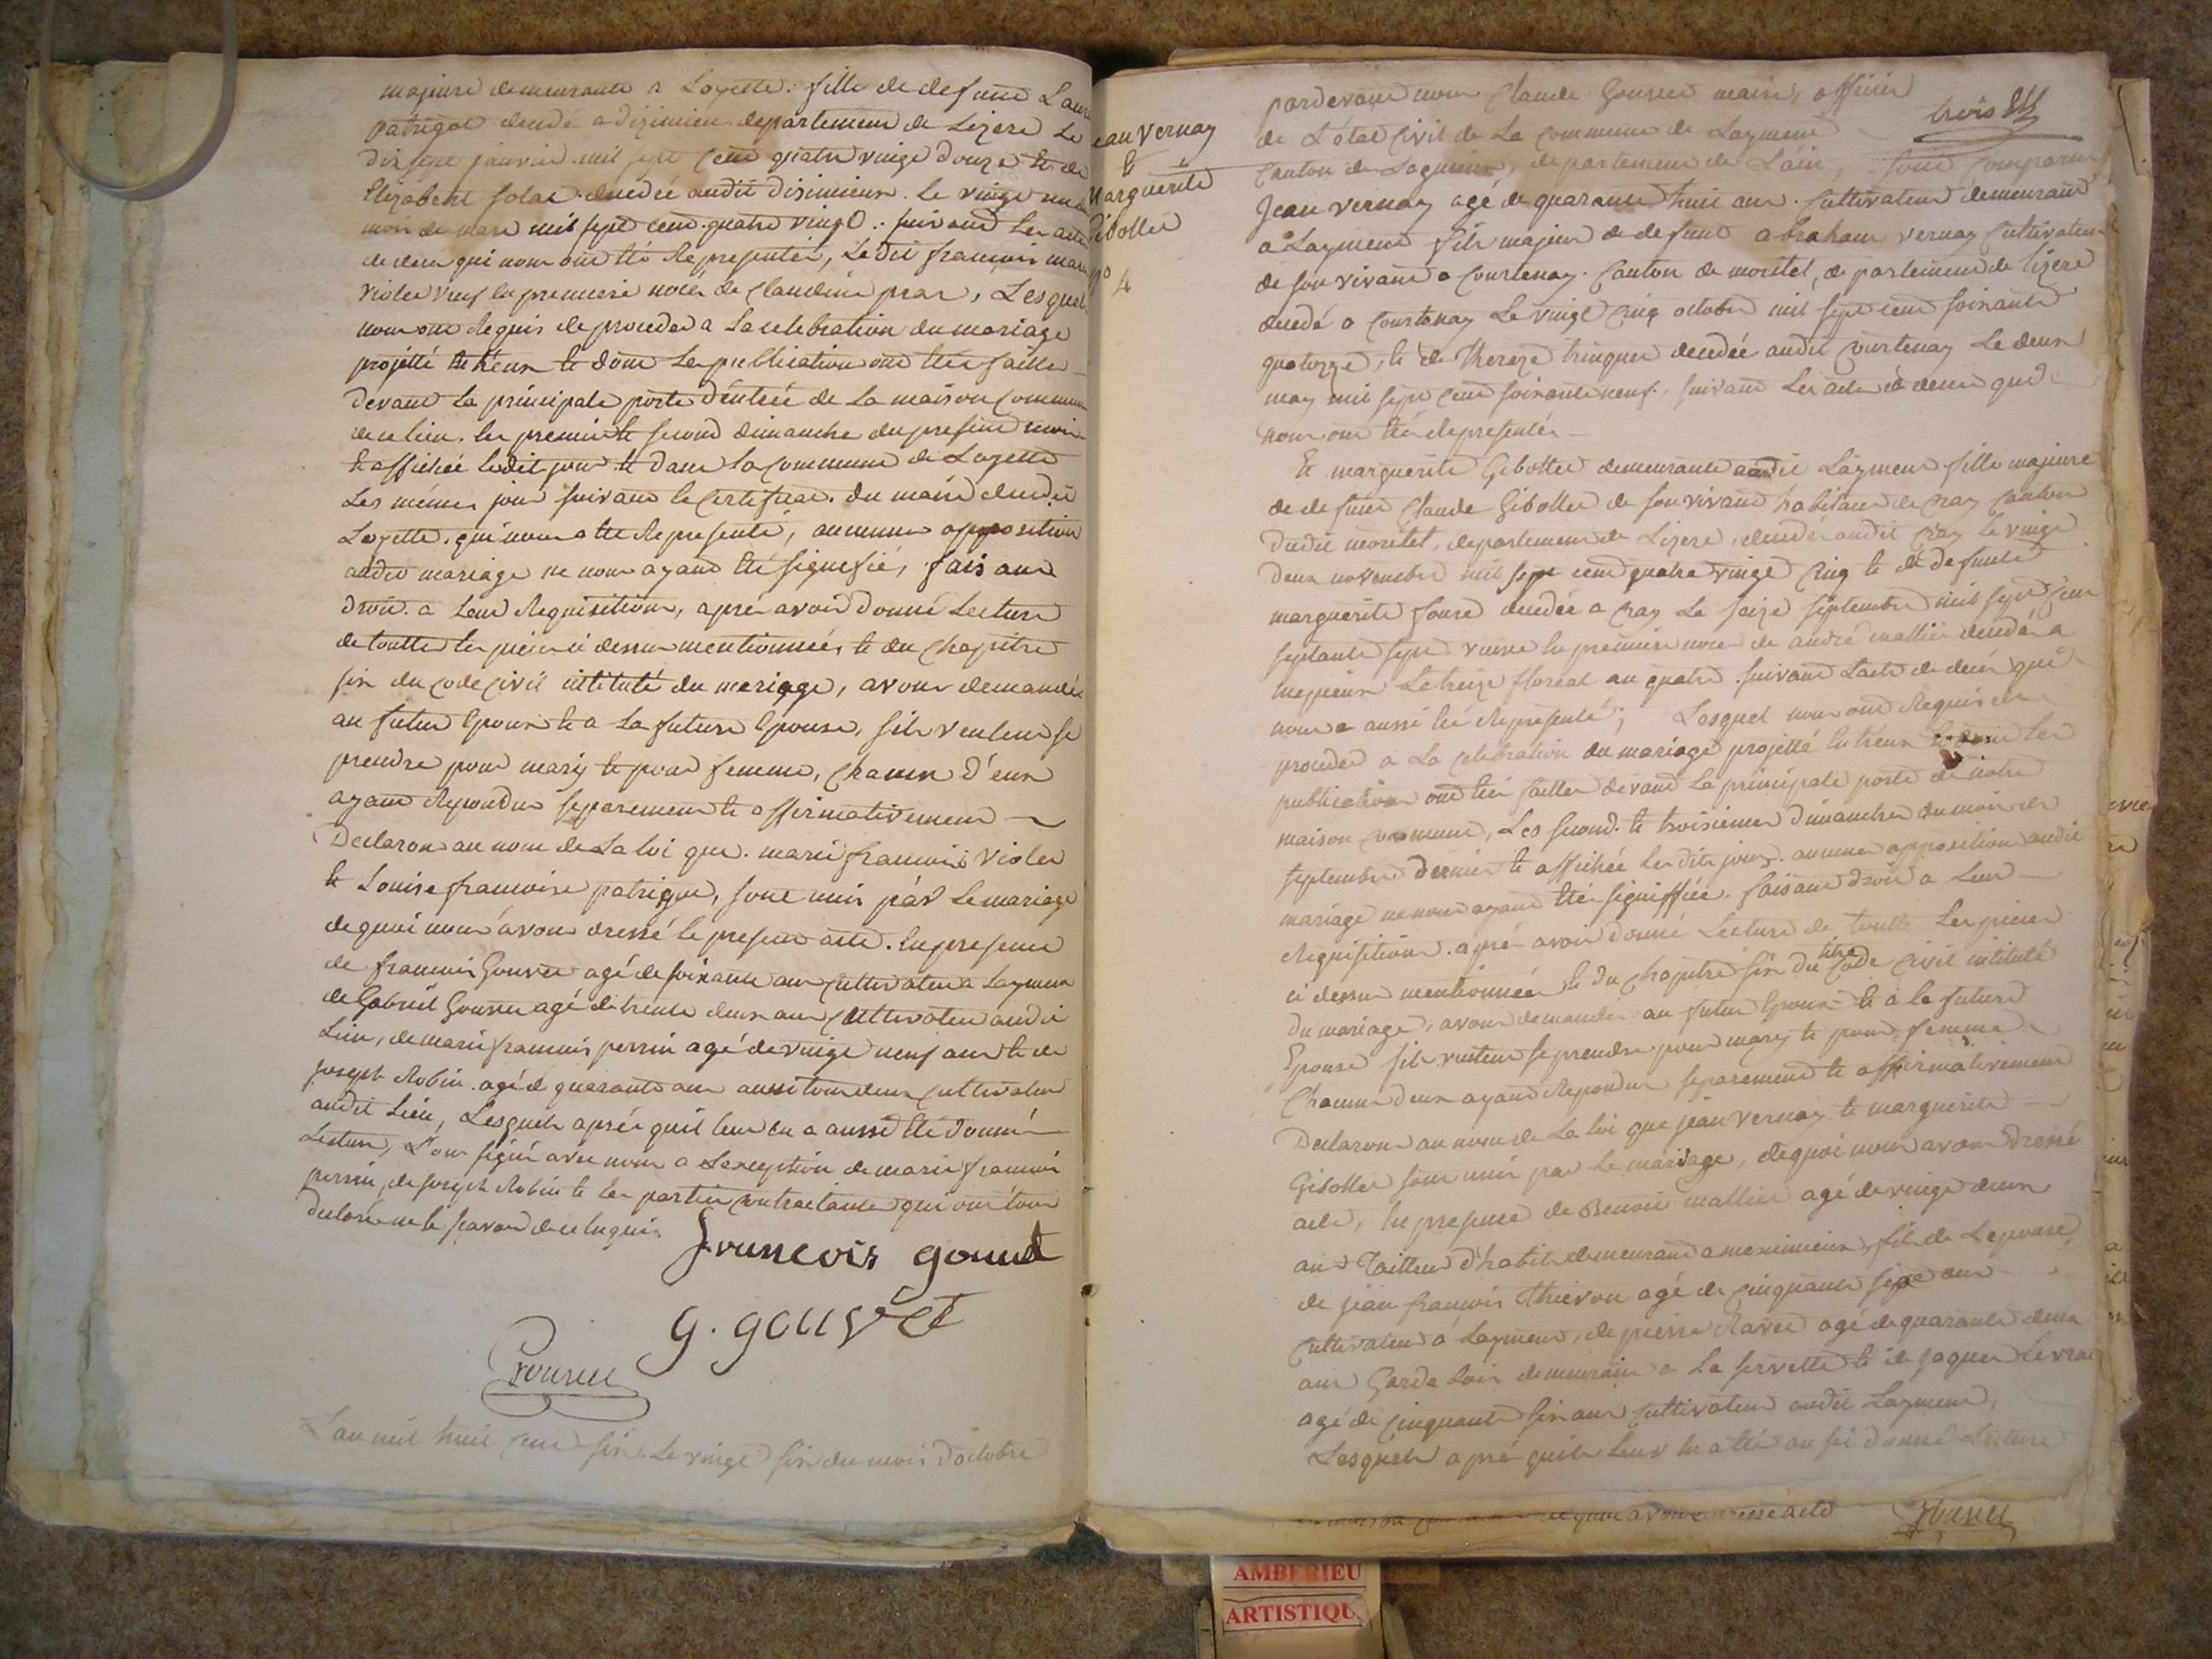 majeure demeurante a Loyette. fille de defunt Laur
patrigot decedé a dizimieu departement de Lizere Le
dix sept janvier mil sept cent quatre vingt douze et de
Elizabeht decedée audit disimieux. le vingt
mois de mars mil sept cent quatre vingt. suivant les actes
de deces qui nous ont été Representés, Ledit francois marie
violet veuf en premiere noces de Claudine prar, Lesquels
nous ont Requis de proceder a La celebration du mariage
projetté entreux et dont Les publications ont étés faittes
devant la principale porte d'entrée de La maison Commune
de ce lieu. les premier et second dimanche du present mois
et affichée ledit jour et dans la commune de Loyette
Les mêmes jour suivant le Certificat. du maire dudit
Loyette. qui nous a été Representé, aucunes opposition
audit mariage ne nous ayant été signefié, faisant
droit. a Leur Requisitions, aprés avoir donné Lecture
de toutte les pieces ci dessus mentionnées et du Chapitre
six du Code Civil intitulé du mariage, avons demandés
au futur Epoux et a La future Epouse, sils veulent se
prendre pour mary et pour femme, chacun d'eux
ayant Repondus separement et affirmativement
Declarons au nom de La loi que. marie francois Violet
et Louise francoise patrigot, sont unis par Le mariage
de quoi nous avons dressé le present acte. En presence
de francois Gouvet agé de soixante ans Cultivateur a Laymen
de Gabriel Gouvet agé de trente deux ans Cultivateur audit
Lieu, de marie francois perrin agé de vingt neuf ans et de
joseph Robin. agé de quarante ans aussi tous deux Cultivateur
audit Lieu, Lesquels aprés quil leur en a aussi été donné
Lecture, L'ont signé avec nous a Lexception de marie francois
perrin, de joseph Robin et les parties Contractantes qui ont tous
declaré ne le scavoir de ce Enquis
francois gouvet
g. gouvet
Gouvet
L'an mil huit cent six. Le vingt six du mois d'octobre
ean vernay
et
Marguerite
Gibollet
no 4
trois
pardevant nous Claude Gouvet maire, officier
de L'état Civil de La Commune de Layment
Canton de Lagnieux, departement de L'ain, sont comparus
Jean vernay agé de quarante huit ans. Cultivateur demeurant
a Layment fils majeur de defunt abraham vernay Cultivateur
de son vivant a Courtenay. Canton de morstel, departement de lizere
decedé a Courtenay Le vingt cinq octobre mil sept cent soixante
quatorze, et de Thereze tringuer decedée audit Courtenay Le deux
may mil sept cent soixante neuf. suivant Les actes de deces qui
nous ont étés Representés
Et marguerite Gibollet demeurante audit Layment fille majeure
de defunt Claude Gibollet de son vivant habitant de Cray Canton
dudit morstel, departement de Lizere, decedé audit Cray le vingt
deux novembre mil sept cent quatre vingt Cinq et de defunte
marguerite decedée a Cray Le seize septembre mil sept Cent
septante sept veuve en premiere noces de andré mallier decedé a
Le treize floreal an quatre. suivant L'acte de deces qui
nous a aussi été Representé; Lesquel nous ont Requis de
proceder a La celebration du mariage projetté Entreux et dont Les
publications ont étés faittes devant La principale porte de notre
maison commune, Les second. et troisieme dimanches du mois de
septembre dernier et affichée Lesdits jours. aucunes opposition audit
mariage ne nous ayant étés signiffiée. faisant droit a Leur
Requisitions. aprés avoir donné Lecture de toutte Les pieces
ci dessus mentionnées et du Chapitre six du titre Code Civil intitulé
du mariage, avons demandés au futur Epoux et a la future
Epouse sils veulent se prendre pour mary et pour femme
Chacun deux ayant Repondus separement et affirmativement
Declarons au nom de La loi que jean vernay et marguerite
Gibollet sont unis par le mariage, de quoi nous avons dressé
acte, En presence de Benoit mallier agé de vingt deux
ans Tailleur d'habits demeurant a meximieux, fils de Lepouse,
de jean francois Thievon agé de Cinquante sept ans
Cultivateur a Layment, de pierre Ravet agé de quarante deux
ans Garde bois demeurant a La servette et de jaques Levrat
agé de Cinquante six ans Cultivateur audit Layment,
Lesquels aprés quils Leur en a été aussi donné Lecture
avons dressé acte
Gouvet
AMBERIEU
ARTISTIQU